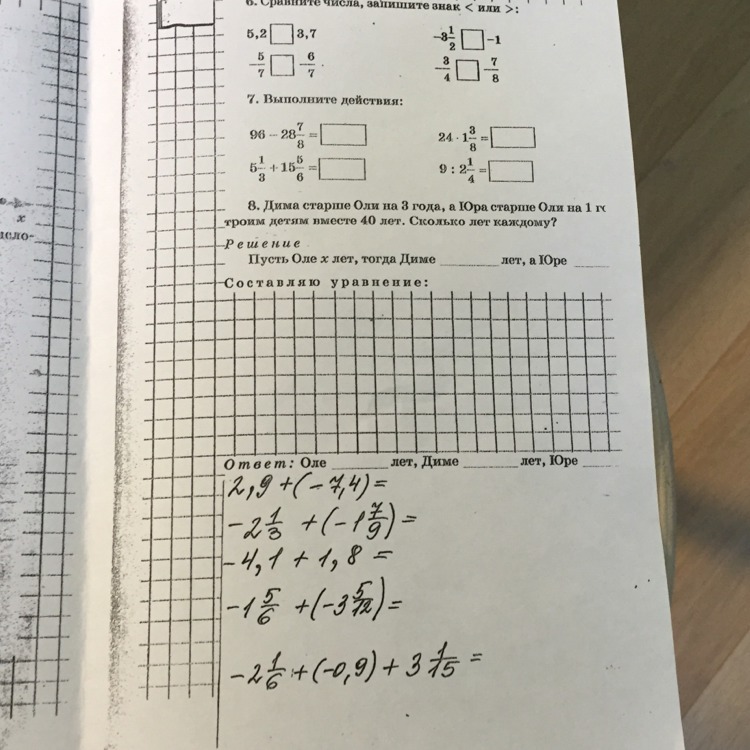 6. Сравните числа, запишите знак < или >:
5,2 □ 3,7
-3 1/2 □ -1
-5/7 □ -6/7
-3/4 □ -7/8
7. Выполните действия:
96 - 28 7/8 = □
24 · 1 3/8 = □
5 1/3 + 15 5/6 = □
9 : 2 1/4 = □
8. Дима старше Оли на 3 года, а Юра старше Оли на 1 г
троим детям вместе 40 лет. Сколько лет каждому?
Решение
Пусть Оле x лет, тогда Диме ______ лет, а Юре ____
Составляю уравнение:
Ответ: Оле ______ лет, Диме ______ лет, Юре ____
x
исло-
2,9 + (-7,4) =
-2 1/3 + (-1 7/9) =
-4,1 + 1,8 =
-1 5/6 + (-3 5/12) =
-2 1/6 + (-0,9) + 3 1/15 =